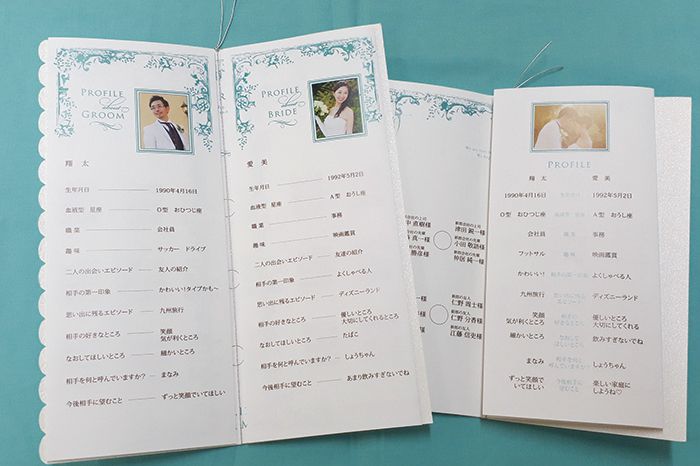 PROFILE
GROOM
翔 太
生年月日 1990年4月16日
血液型 星座 O型 おひつじ座
職 業 会社員
趣 味 サッカー ドライブ
二人の出会いエピソード 友人の紹介
相手の第一印象 かわいい!タイプかも~
思い出に残るエピソード 九州旅行
相手の好きなところ 笑顔
気が利くところ
なおしてほしいところ 細かいところ
相手を何と呼んでいますか? まなみ
今後相手に望むこと ずっと笑顔でいてほしい
PROFILE
BRIDE
愛 美
生年月日 1992年5月2日
血液型 星座 A型 おうし座
職 業 事務
趣 味 映画鑑賞
二人の出会いエピソード 友達の紹介
相手の第一印象 よくしゃべる人
思い出に残るエピソード ディズニーランド
相手の好きなところ 優しいところ
大切にしてくれるところ
なおしてほしいところ たばこ
相手を何と呼んでいますか? しょうちゃん
今後相手に望むこと あまり飲みすぎないでね
新郎会社の上司
津田 鋭一様
新郎会社の先輩
小田 敬語様
新郎会社の先輩
仲居 純一様
新郎の友人
仁野 周士様
新郎の友人
仁野 分香様
新郎の友人
江藤 信史様
PROFILE
翔 太 愛 美
1990年4月16日 生年月日 1992年5月2日
O型 おひつじ座 血液型 星座 A型 おうし座
会社員 職 業 事務
フットサル 趣 味 映画鑑賞
かわいい! 相手の第一印象 よくしゃべる人
九州旅行 思い出に残る
エピソード ディズニーランド
笑顔
気が利くところ 相手の
好きなところ 優しいところ
大切にしてくれるところ
細かいところ なおして
ほしいところ 飲みすぎないでね
まなみ 相手を何と
呼んでいますか? しょうちゃん
ずっと笑顔
でいてほしい 今後相手に
望むこと 楽しい家庭に
しようね♡